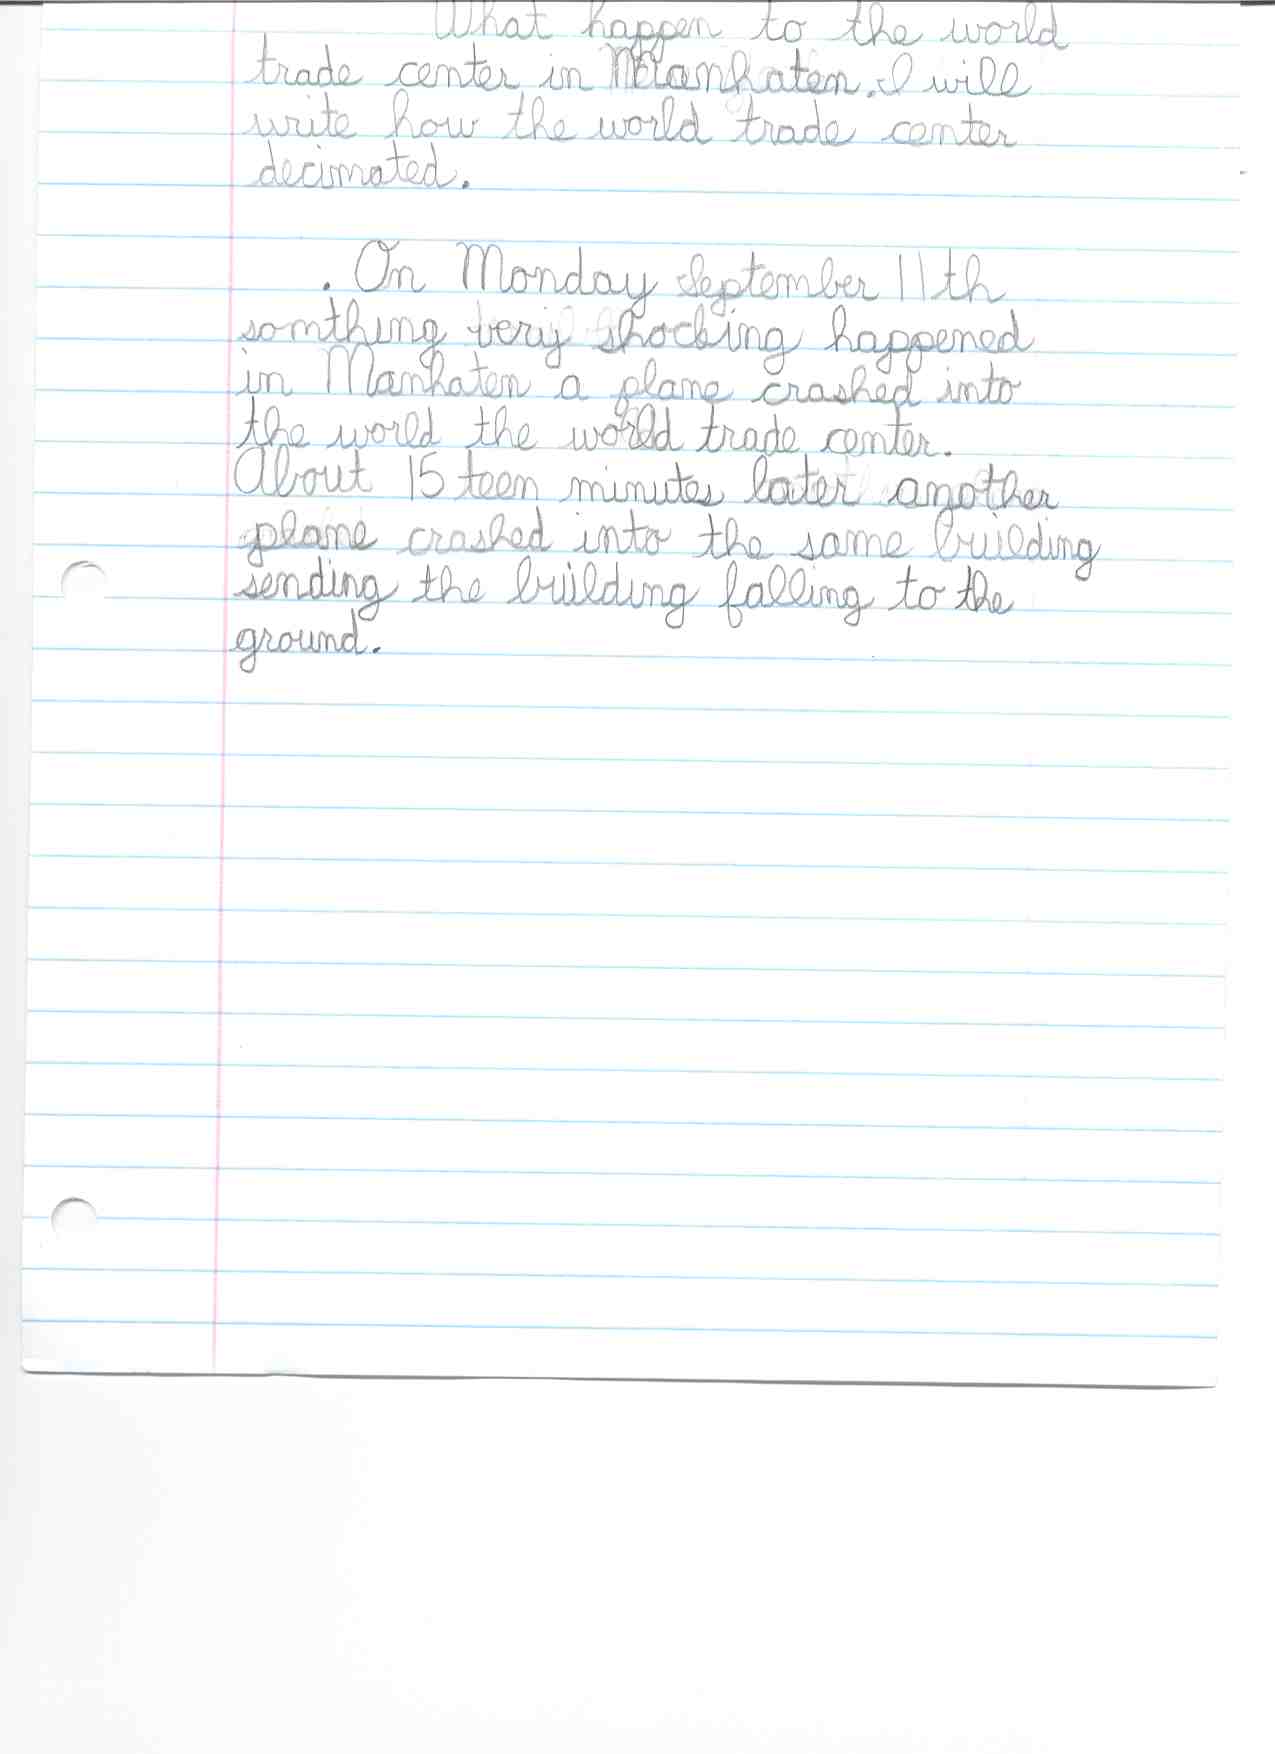 What happen to the world
trade center in Manhaten. I will
write how the world trade center
decimated.
. On Monday September 11th
somthing very shocking happened
in Manhaten a plane crashed into
the world the world trade center.
About 15 teen minutes later another
plane crashed into the same building
sending the building falling to the
ground.